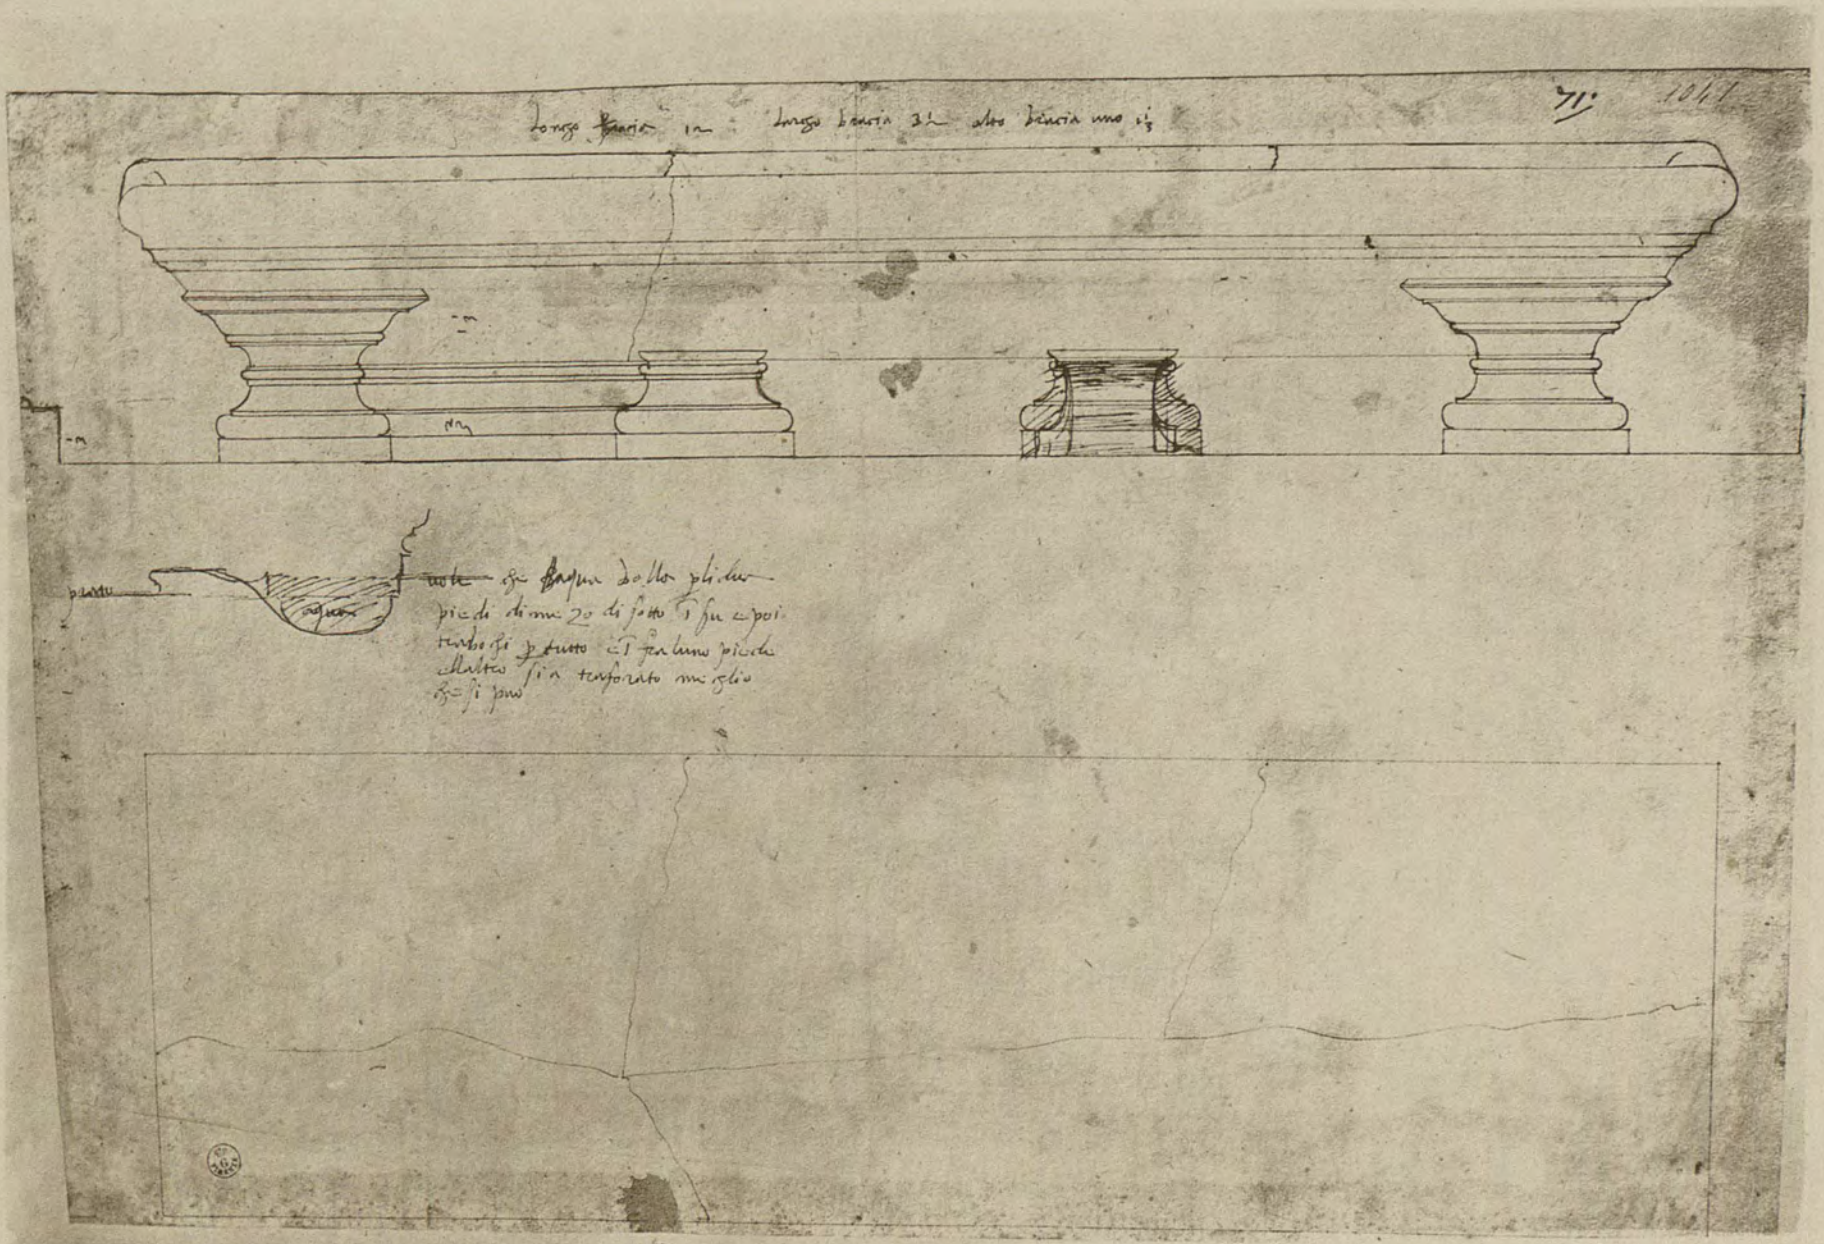 71·
1041
longo bracia 12 largo bracia 3½ alto bracia uno ⅓
piano
aqua
vole che laqua bolla p li dua
piedi di me 20 di sotto ī su e poi
trabochi p tutto e ī fra luno piede
ellaltro sia traforato meglio
che si puo